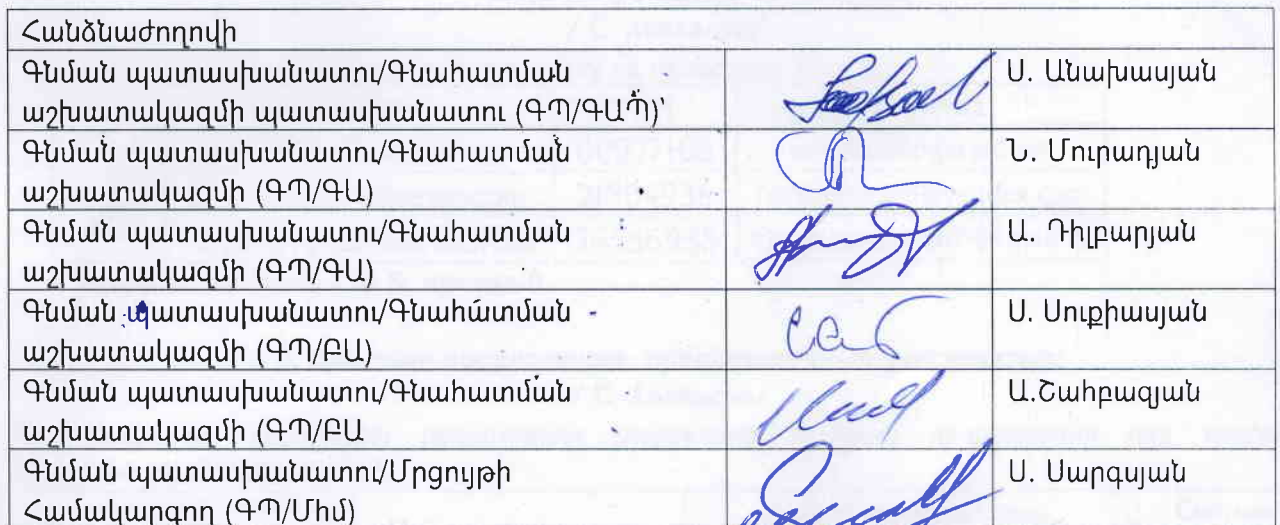 Հանձնաժողովի
Գնման պատասխանատու/Գնահատման
աշխատակազմի պատասխանատու (ԳՊ/ԳԱՊ)՝
Ս. Անախասյան
Գնման պատասխանատու/Գնահատման
աշխատակազմի (ԳՊ/ԳԱ)
Ն. Մուրադյան
Գնման պատասխանատու/Գնահատման
աշխատակազմի (ԳՊ/ԳԱ)
Ա. Դիլբարյան
Գնման պատասխանատու/Գնահատման
աշխատակազմի (ԳՊ/ԲԱ)
Ս. Սուքիասյան
Գնման պատասխանատու/Գնահատման
աշխատակազմի (ԳՊ/ԲԱ
Ա.Շահբազյան
Գնման պատասխանատու/Մրցույթի
Համակարգող (ԳՊ/Մհմ)
Ս. Սարգսյան